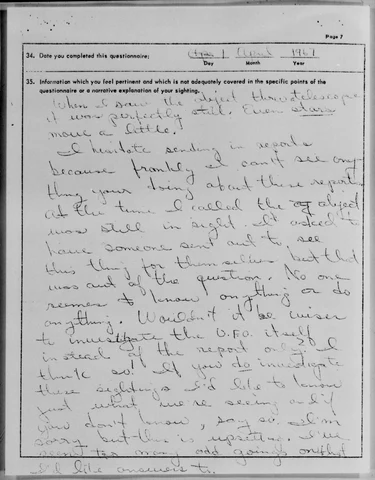 Page 7
34. Date you completed this questionnaire: 1 April 1961
Day Month Year
35. Information which you feel pertinent and which is not adequately covered in the specific points of the
questionnaire or a narrative explanation of your sighting.
When I saw the object thru telescope
it was perfectly still. Even stars
move a little.
I hesitate sending in reports
because frankly I can't see any
thing your doing about these reports
At the time I called the object
was still in sight. I asked to
have someone sent out to see
this thing for themselves but that
was out of the question. No one
seemes to know anything or do
anything. Wouldn't it be wiser
to investigate the U.F.O. itself
instead of the report only? I
think so! If you do investigate
these sightings I'd like to know
just what we're seeing and if
you don't know, say so. I'm
sorry but this is upsetting. I've
seen too many odd goings on that
I'd like answers to.